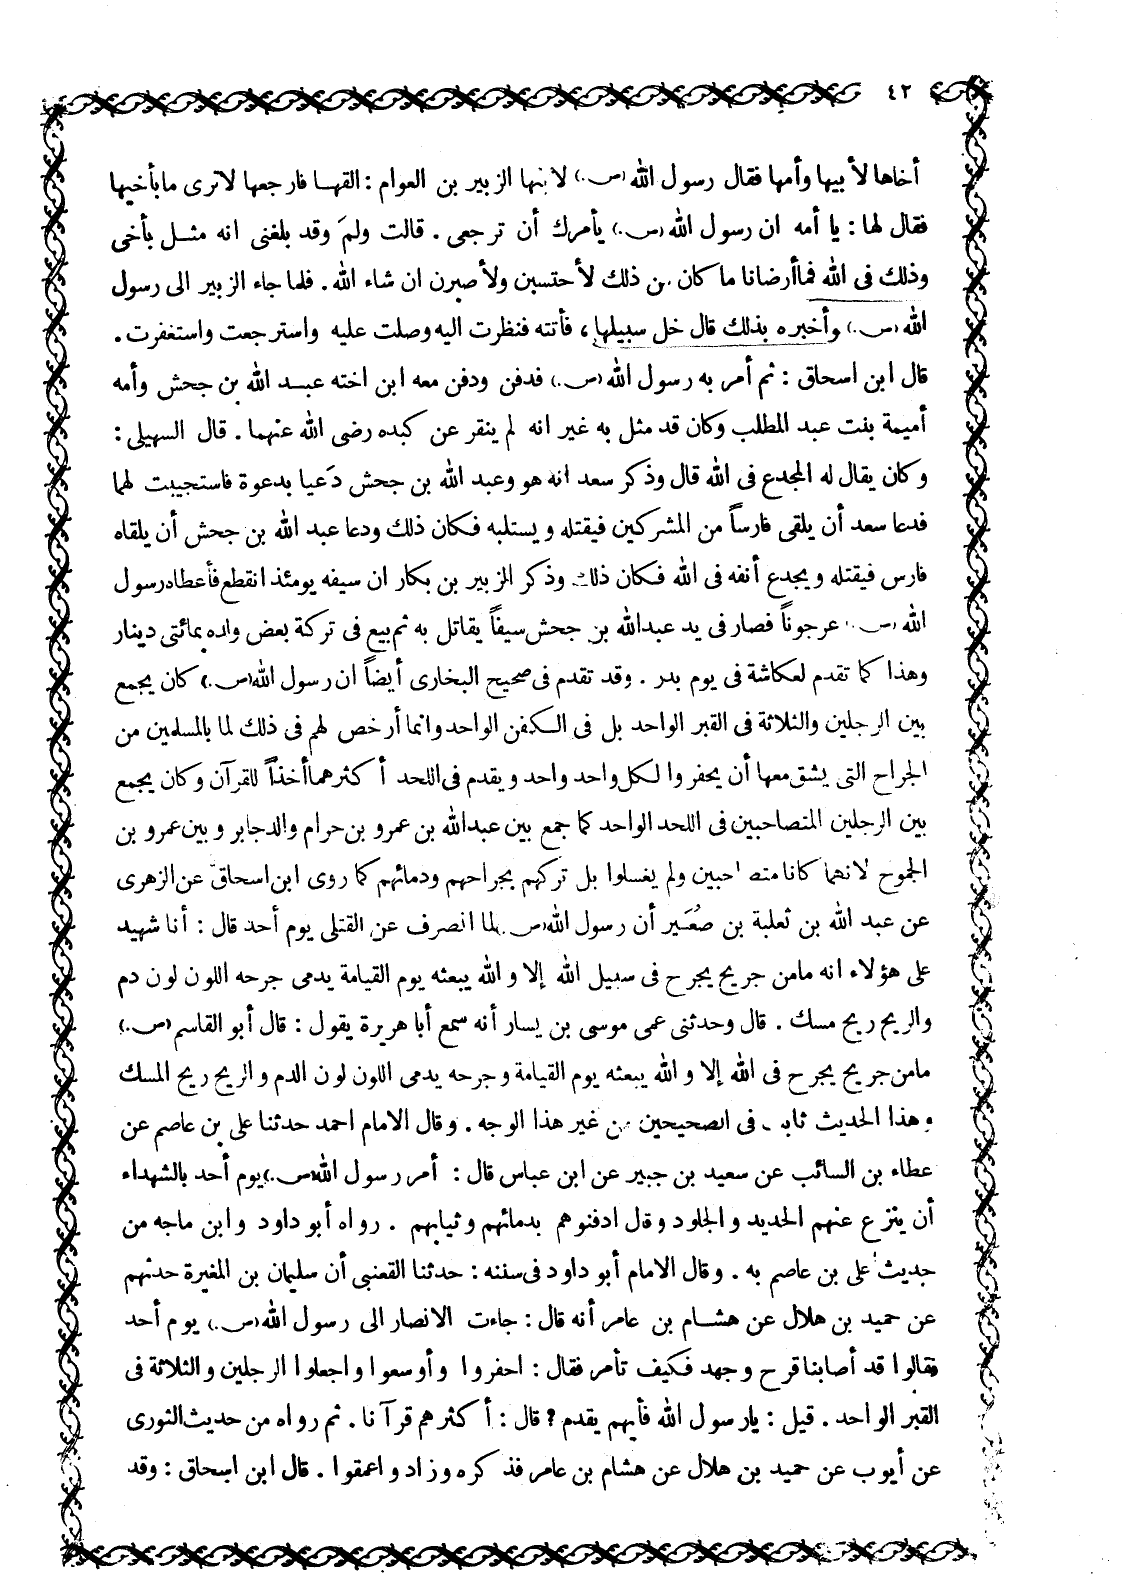 ٤٢
أخاها لأبيها وأمها فقال رسول الله (ص.) لابنها الزبير بن العوام : القهـا فارجعها لا ترى ما بأخيها
فقال لها : يا أمه ان رسول الله (ص.) يأمرك أن ترجعى . قالت ولمَ وقد بلغنى انه مثـل بأخى
وذلك فى الله فما أرضانا ما كان من ذلك لأحتسبن ولأصبرن ان شاء الله . فلما جاء الزبير الى رسول
الله (ص.) وأخبره بذلك قال خل سبيلها ، فأتته فنظرت اليه وصلت عليه واسترجعت واستغفرت .
قال ابن اسحاق : ثم أمر به رسول الله (ص.) فدفن ودفن معه ابن اخته عبـد الله بن جحش وأمه
أميمة بنت عبد المطلب وكان قد مثل به غير انه لم ينقر عن كبده رضى الله عنهما . قال السهيلى :
وكان يقال له المجدع فى الله قال وذكر سعد انه هو وعبد الله بن جحش دَعيا بدعوة فاستجيبت لهما
فدعا سعد أن يلقى فارساً من المشركين فيقتله ويستلبه فكان ذلك ودعا عبد الله بن جحش أن يلقاه
فارس فيقتله ويجدع أنفه فى الله فكان ذلك وذكر الزبير بن بكار ان سيفه يومئذ انقطع فأعطاه رسول
الله (ص.) عرجوناً فصار فى يد عبدالله بن جحش سيفاً يقاتل به ثم بيع فى تركة بعض ولده بمائتى دينار
وهذا كما تقدم لعكاشة فى يوم بدر . وقد تقدم فى صحيح البخارى أيضاً ان رسول الله (ص.) كان يجمع
بين الرجلين والثلاثة فى القبر الواحد بل فى الكفن الواحد وانما أرخص لهم فى ذلك لما بالمسلمين من
الجراح التى يشق معها أن يحفروا لكل واحد واحد ويقدم فى اللحد أكثرهما أخذاً للقرآن وكان يجمع
بين الرجلين المتصاحبين فى اللحد الواحد كما جمع بين عبدالله بن عمرو بن حرام والد جابر وبين عمرو بن
الجموح لانهما كانا متصاحبين ولم يغسلوا بل تركهم بجراحهم ودمائهم كما روى ابن اسحاق عن الزهرى
عن عبد الله بن ثعلبة بن صُعَير أن رسول الله (ص.) لما انصرف عن القتلى يوم أحد قال : أنا شهيد
على هؤلاء انه مامن جريح يجرح فى سبيل الله إلا والله يبعثه يوم القيامة يدمى جرحه اللون لون دم
والريح ريح مسك . قال وحدثنى عمى موسى بن يسار أنه سمع أبا هريرة يقول : قال أبو القاسم (ص.)
مامن جريح يجرح فى الله إلا والله يبعثه يوم القيامة وجرحه يدمى اللون لون الدم والريح ريح المسك
وهذا الحديث ثابت فى الصحيحين من غير هذا الوجه . وقال الامام احمد حدثنا على بن عاصم عن
عطاء بن السائب عن سعيد بن جبير عن ابن عباس قال : أمر رسول الله (ص.) يوم أحد بالشهداء
أن ينزع عنهم الحديد والجلود وقال ادفنوهم بدمائهم وثيابهم . رواه أبو داود وابن ماجه من
حديث على بن عاصم به . وقال الامام أبو داود فى سننه : حدثنا القعنبى أن سليمان بن المغيرة حدثهم
عن حميد بن هلال عن هشـام بن عامر أنه قال : جاءت الانصار الى رسول الله (ص.) يوم أحد
فقالوا قد أصابنا قرح وجهد فكيف تأمر فقال : احفروا وأوسعوا واجعلوا الرجلين والثلاثة فى
القبر الواحد . قيل : يارسول الله فأيهم يقدم ? قال : أكثرهم قرآنا . ثم رواه من حديث الثورى
عن أيوب عن حميد بن هلال عن هشام بن عامر فذكره وزاد واعمقوا . قال ابن اسحاق : وقد